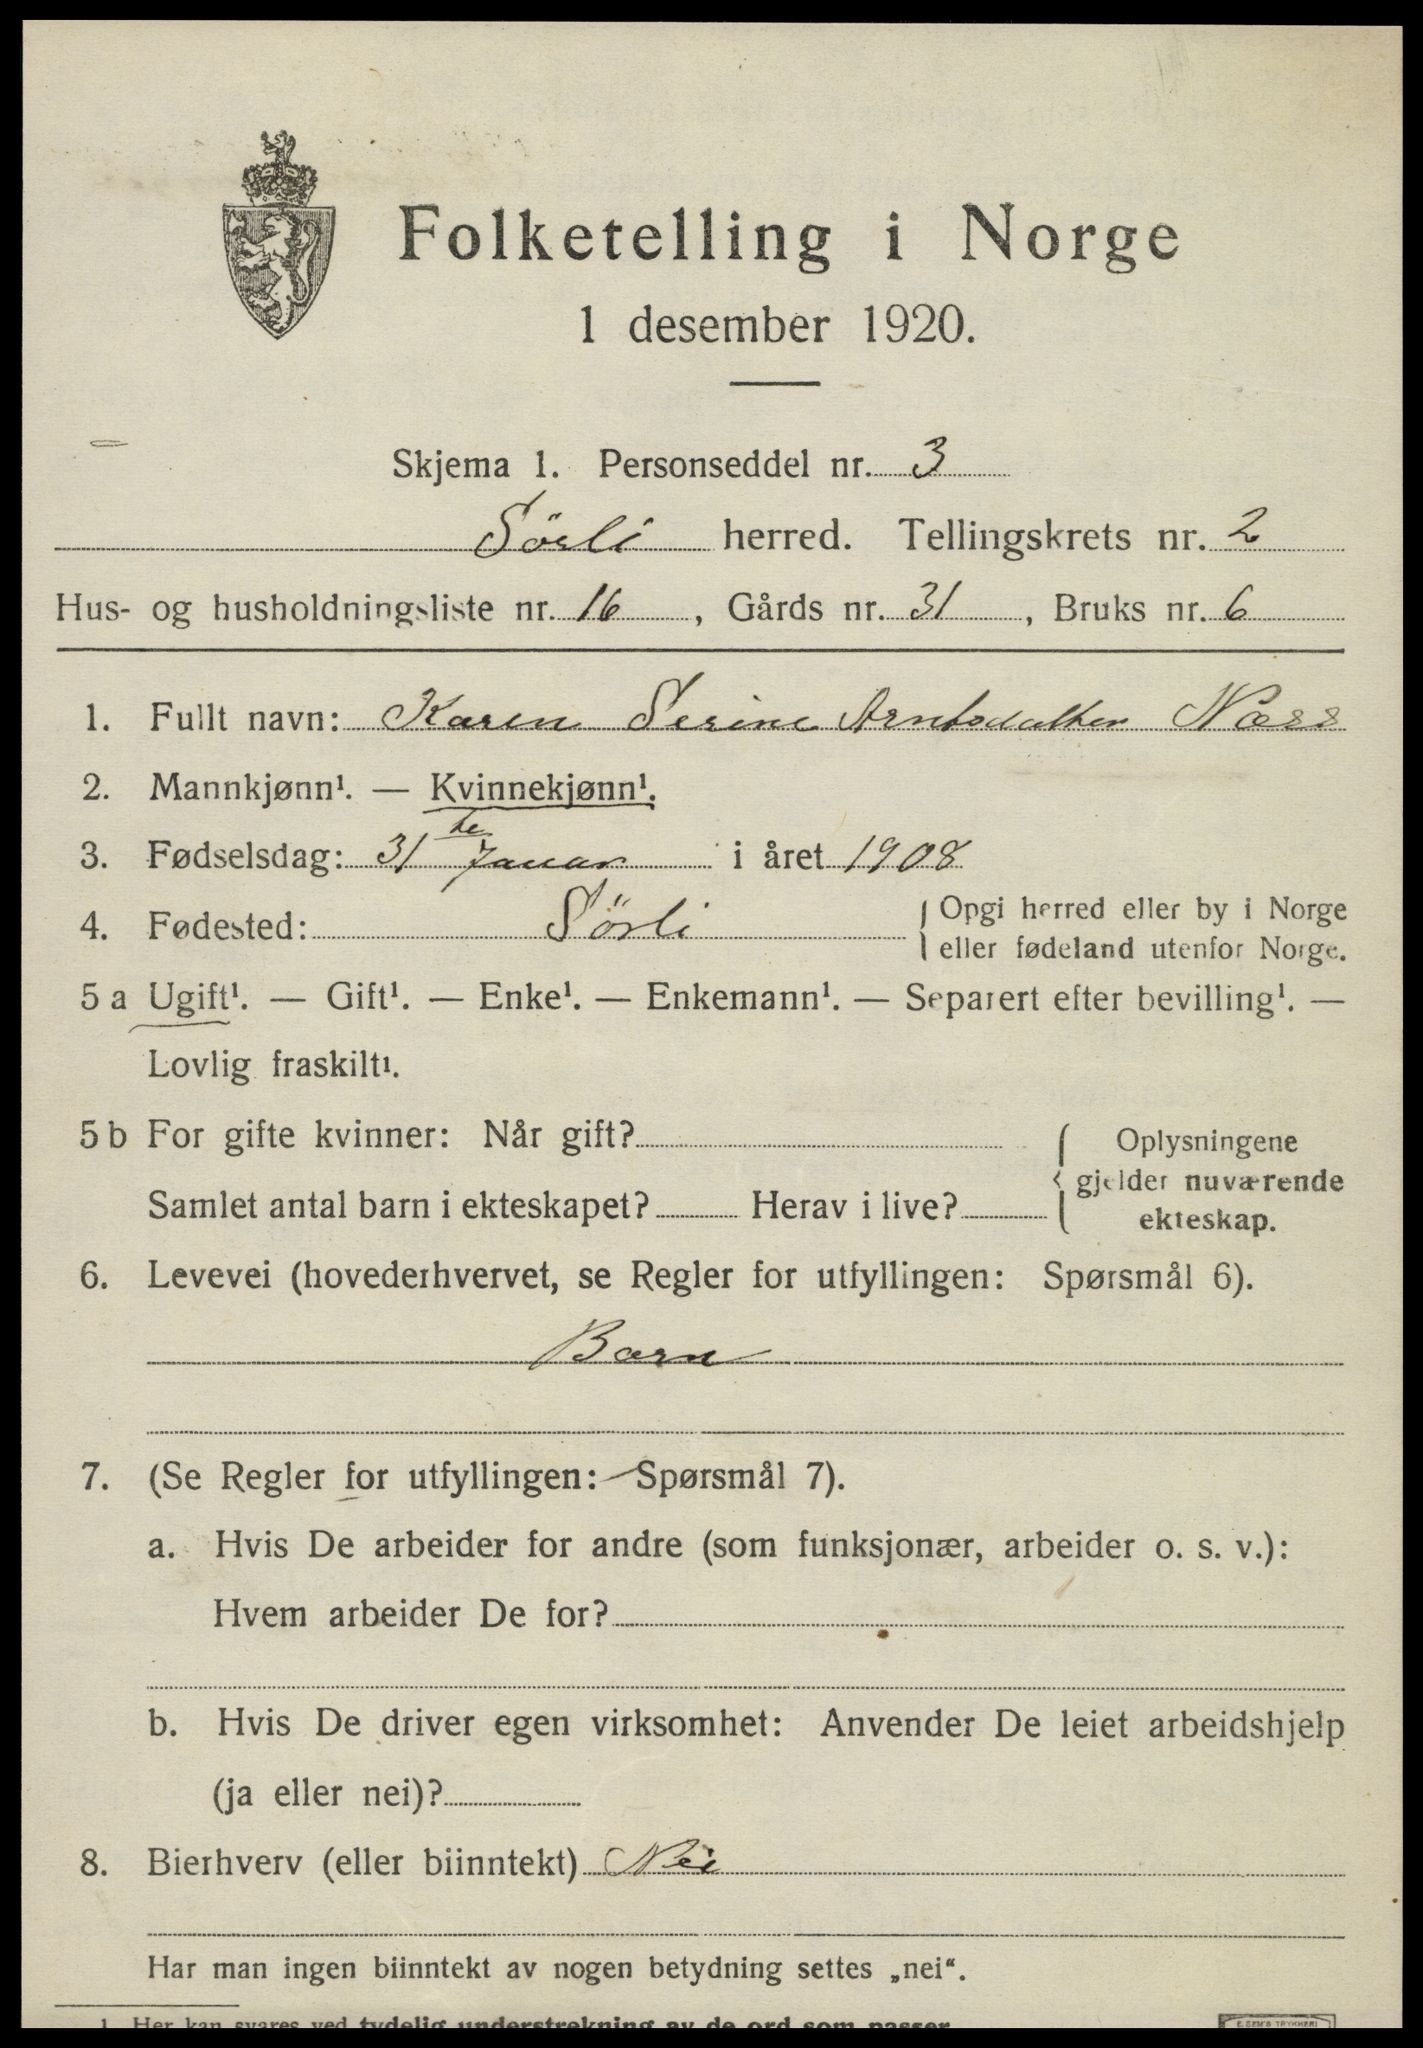 Folketelling i Norge
1 desember 1920.
Skjema 1. Personseddel nr. 3
Sörli herred. Tellingskrets nr. 2
Hus- og husholdningsliste nr. 16, Gårds nr. 31, Bruks nr. 6
1. Fullt navn: Karen Serine Arntsdatter Næss
2. Mannkjønn¹. — Kvinnekjønn¹.
3. Fødselsdag: 31te Januar i året 1908
4. Fødested: Sörli { Opgi herred eller by i Norge
eller fødeland utenfor Norge.
5 a Ugift¹. — Gift¹. — Enke¹. — Enkemann¹. — Separert efter bevilling¹. —
Lovlig fraskilt¹.
5 b For gifte kvinner: Når gift?
Samlet antal barn i ekteskapet? Herav i live?
{ Oplysningene
gjelder nuværende
ekteskap.
6. Levevei (hovederhvervet, se Regler for utfyllingen: Spørsmål 6).
Barn
7. (Se Regler for utfyllingen: Spørsmål 7).
a. Hvis De arbeider for andre (som funksjonær, arbeider o. s. v.):
Hvem arbeider De for?
b. Hvis De driver egen virksomhet: Anvender De leiet arbeidshjelp
(ja eller nei)?
8. Bierhverv (eller biinntekt) Nei
Har man ingen biinntekt av nogen betydning settes „nei“.
1 Her kan svares ved tydelig understrekning av de ord som passer
E. SEM'S TRYKKERI